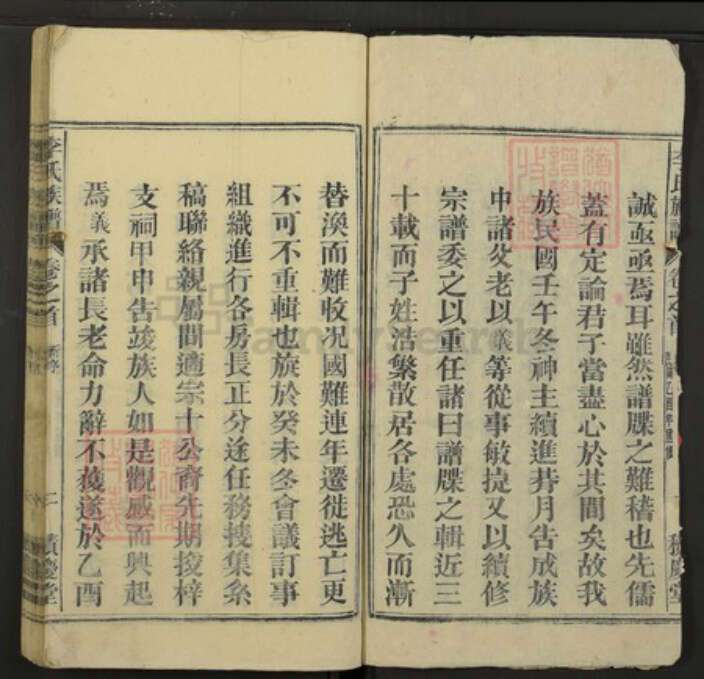 李氏族譜 卷之首
積慶堂
誠亟亟焉耳雖然譜牒之難稽也先儒
蓋有定論君子當盡心於其間矣故我
族民國壬午冬神主續進朞月告成族
中諸父老以議等從事敏捷又以續修
宗譜委之以重任諸曰譜牒之輯近三
十載而子姓浩繁散居各處恐久而漸
替渙而難收况國難連年遷徙逃亡更
不可不重輯也旋於癸未冬會議訂事
組織進行各房長正分途任務搜集系
稿聯絡親屬間適宗十公裔先期捘梓
支祠甲申告竣族人如是觀感而興起
焉議承諸長老命力辭不獲遂於乙酉
李氏族譜 卷之首
二 積慶堂
familysearch